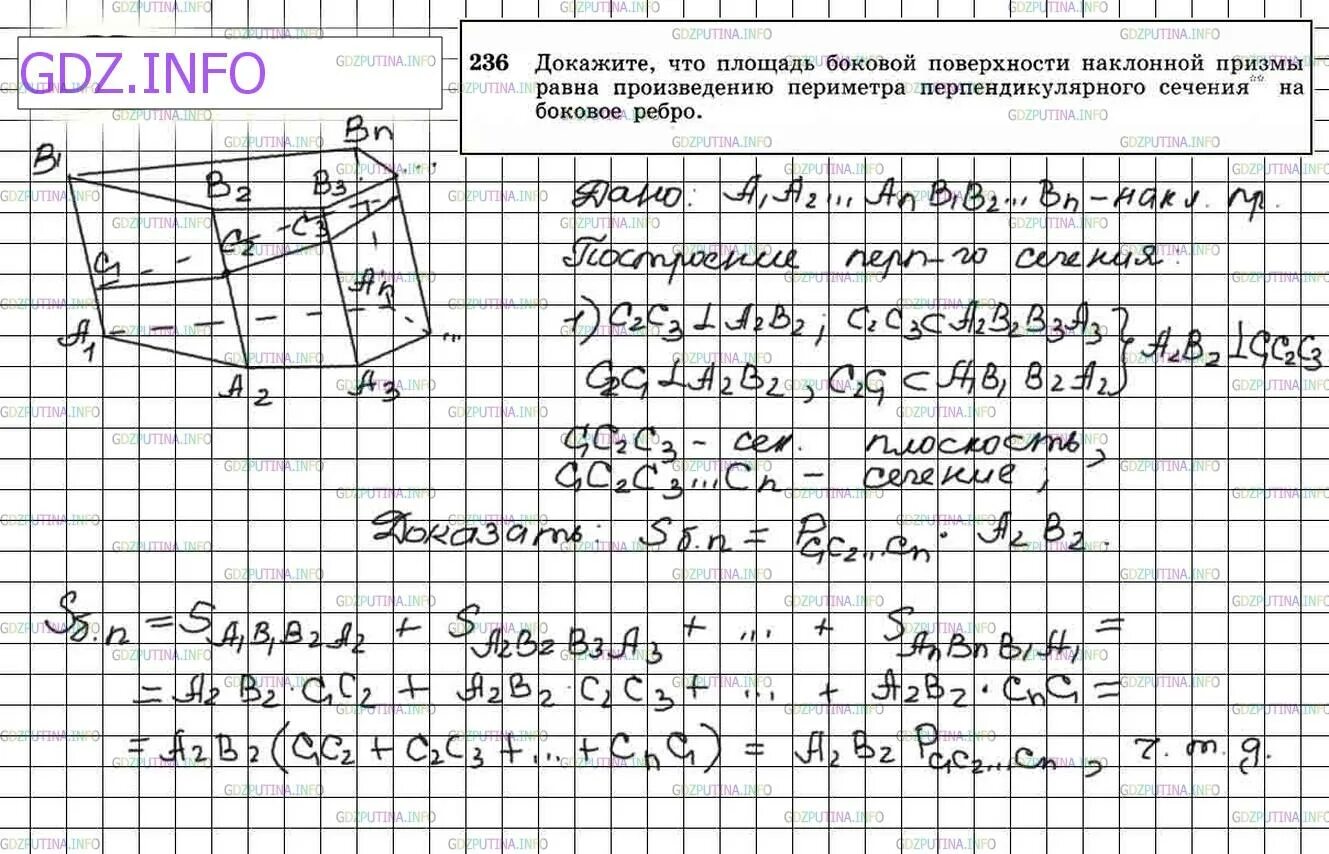 GDZ.INFO
236 Докажите, что площадь боковой поверхности наклонной призмы
равна произведению периметра перпендикулярного сечения** на
боковое ребро.
B1 B2 B3 Bn ...
C1 C2 C3
A1 A2 A3 An ...
Дано: A1A2...AnB1B2...Bn – накл. пр.
Построение перп-го сечения:
1) C2C3 ⊥ A2B2; C2C3 ⊂ A2B2B3A3 } A2B2 ⊥ C1C2C3
C2C1 ⊥ A2B2, C2C1 ⊂ A1B1B2A2
C1C2C3 – сек. плоскость,
C1C2C3...Cn – сечение;
Доказать: Sб.п = PC1C2...Cn · A2B2.
Sб.п = SA1B1B2A2 + SA2B2B3A3 + ... + SAnBnB1A1 =
= A2B2 · C1C2 + A2B2 · C2C3 + ... + A2B2 · CnC1 =
= A2B2 (C1C2 + C2C3 + ... + CnC1) = A2B2 PC1C2...Cn, ч.т.д.
GDZPUTINA.INFO